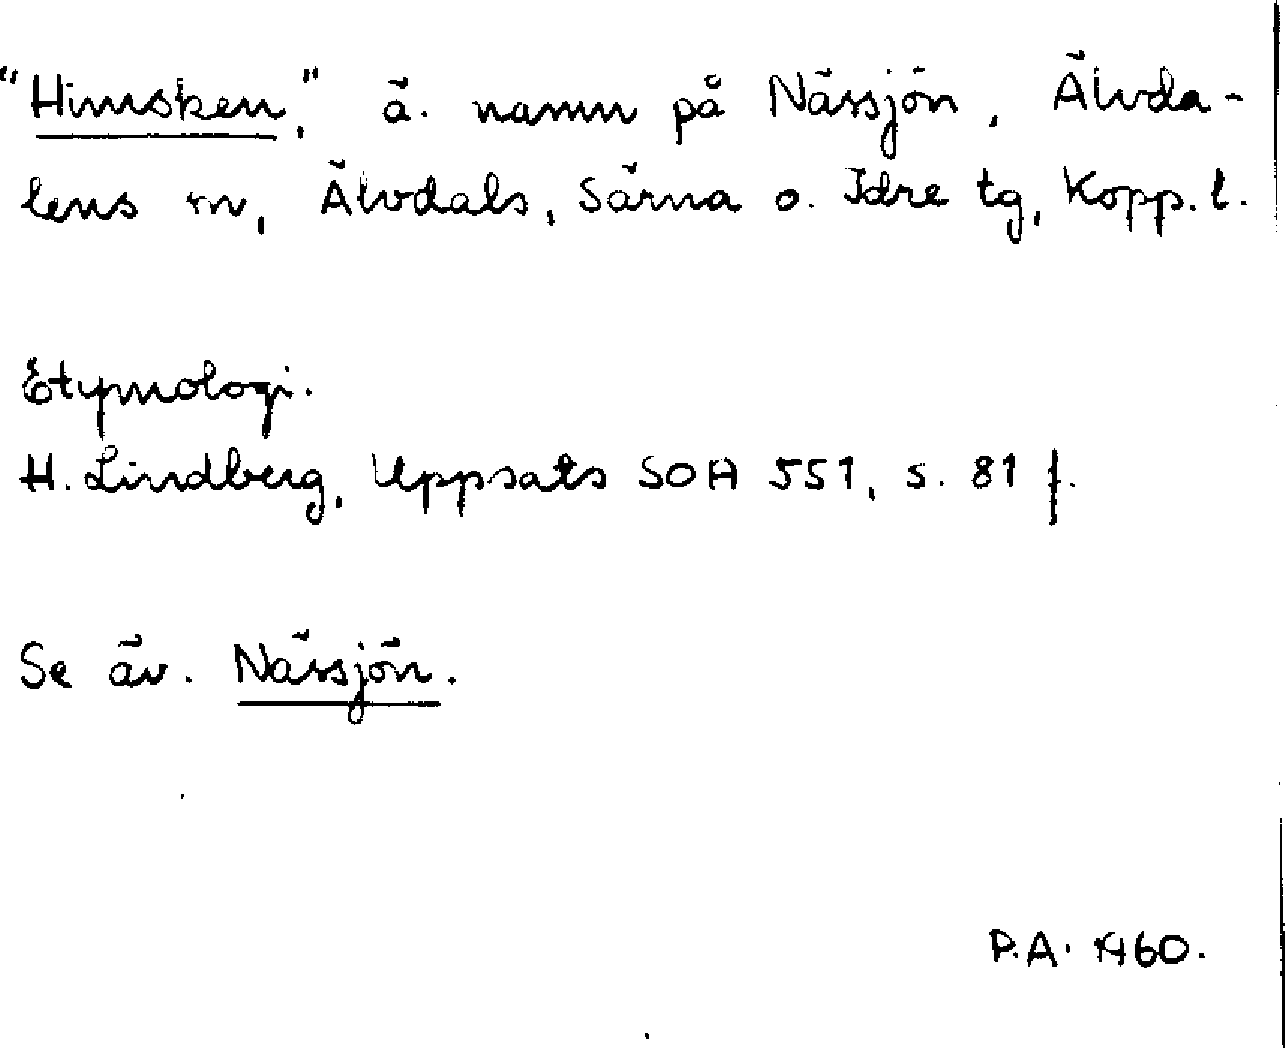 "Himsken," ä. namn på Nässjön, Älvda-
lens sn, Älvdals, Särna o. Idre tg, Kopp. l.
Etymologi.
H. Lindberg, Uppsats SOA 551, s. 81 f.
Se äv. Nässjön.
P.A. 1960.